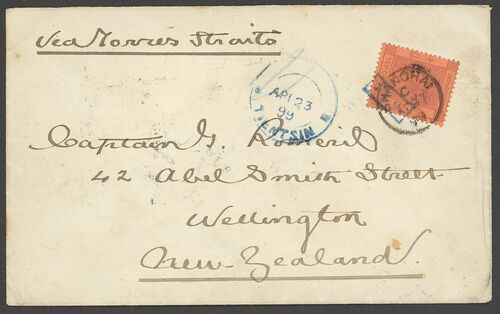 Via Torres Straits
APL 23
99
TIENTSIN
SHANGHAI
Captain G.
42 Abel Smith Street
Wellington
New Zealand.